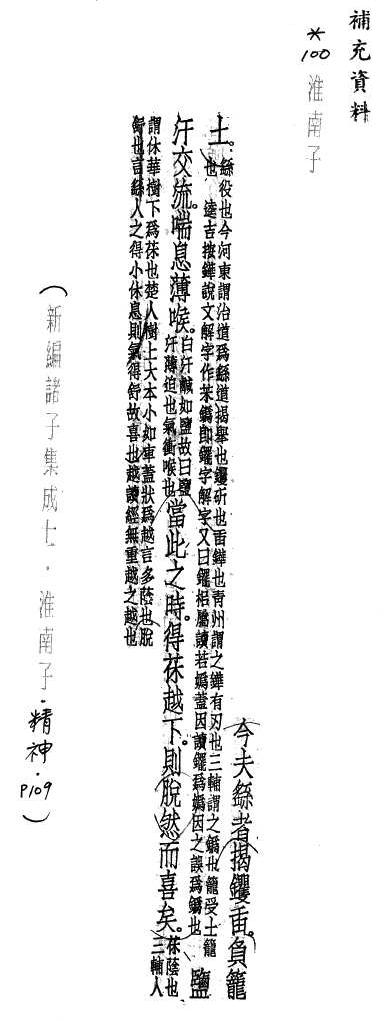 補充資料
*100 淮南子
今夫繇者揭钁臿。負籠
土。繇役也今河東謂治道為繇道揭舉也钁斫也臿鏵也青州謂之鏵有刃也三輔謂之鎢也籠受土籠
也 逵吉按鏵說文解字作茉鎢即钁字解字又曰钁相屬讀若嬀蓋因讀钁為嬀因之誤為鎢也 鹽
汗交流。喘息薄喉。白汗鹹如鹽故曰鹽汗薄迫也氣衝喉也當此之時。得茠越下。則脫然而喜矣。茠蔭也三輔人
謂休華樹下為茠也楚人樹上大本小如車蓋狀為越言多蔭也脫
舒也言繇人之得小休息則氣得舒故喜也越讀經無重越之越也
(新編諸子集成七.淮南子.精神.P109)